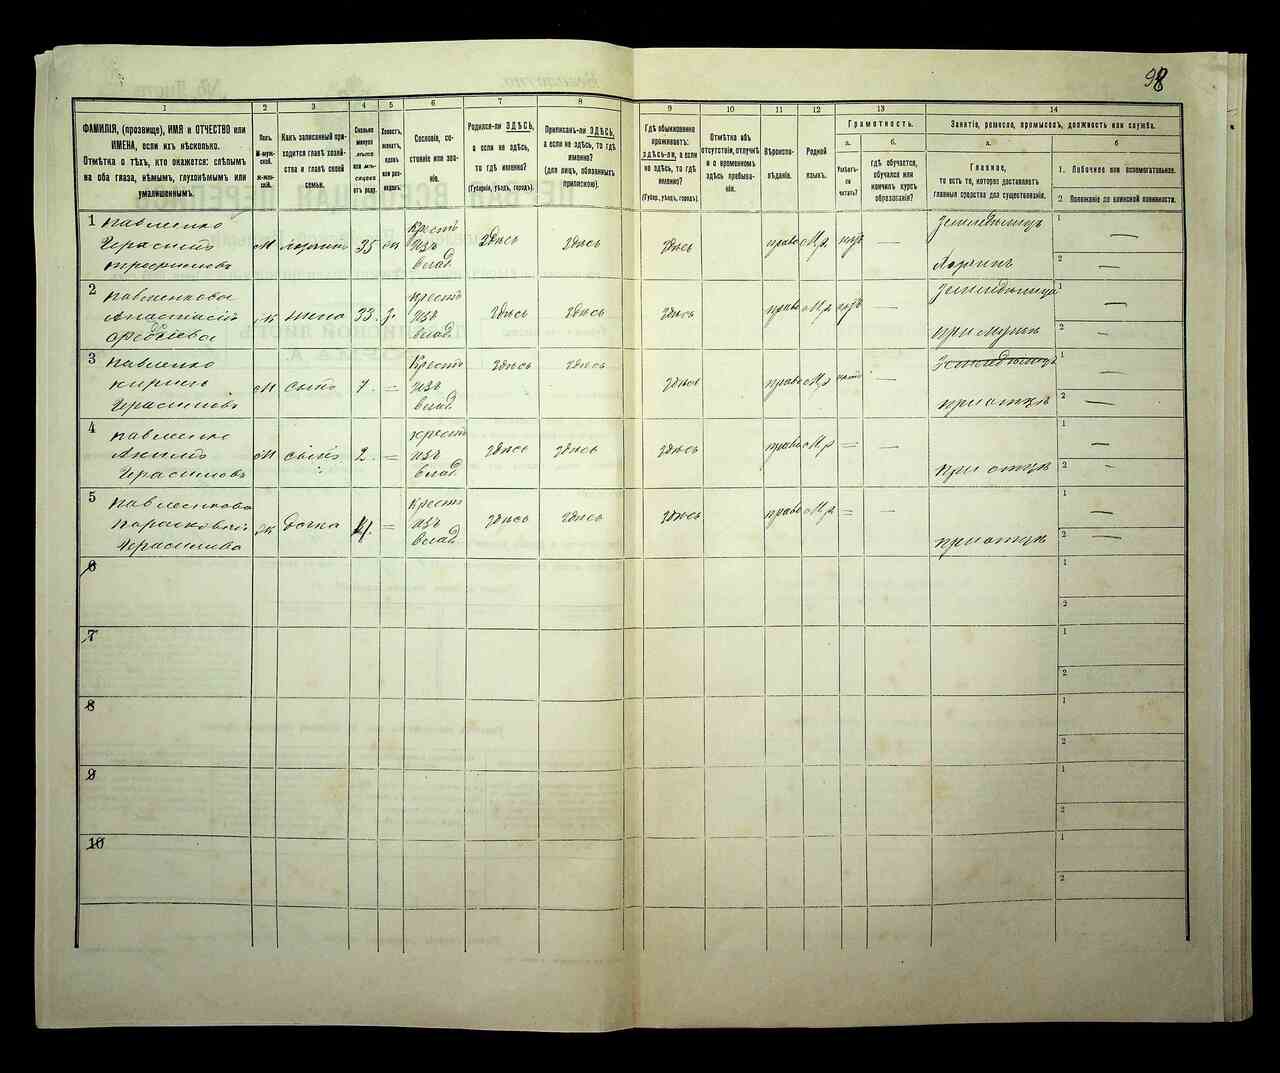 98
1 2 3 4 5 6 7 8 9 10 11 12 13 14
ФАМИЛІЯ, (прозвище), ИМЯ и ОТЧЕСТВО или
ИМЕНА, если ихъ нѣсколько.
Отмѣтка о тѣхъ, кто окажется: слѣпымъ
на оба глаза, нѣмымъ, глухонѣмымъ или
умалишеннымъ.
Полъ.
М-муж-
ской.
Ж-жен-
скій.
Какъ записанный при-
ходится главѣ хозяй-
ства и главѣ своей
семьи.
Сколько
минуло
лѣтъ
или мѣ-
сяцевъ
отъ роду.
Холостъ,
женатъ,
вдовъ
или раз-
веденъ.
Сословіе, со-
стояніе или зва-
ніе.
Родился-ли ЗДѢСЬ,
а если не здѣсь,
то гдѣ именно?
(Губернія, уѣздъ, городъ).
Приписанъ-ли ЗДѢСЬ,
а если не здѣсь, то гдѣ
именно?
(для лицъ, обязанныхъ
припискою).
Гдѣ обыкновенно
проживаетъ:
здѣсь-ли, а если
не здѣсь, то гдѣ
именно?
(Губер., уѣздъ, городъ).
Отмѣтка объ
отсутствіи, отлучкѣ
и о временномъ
здѣсь пребыва-
ніи.
Вѣроиспо-
вѣданіе.
Родной
языкъ.
Грамотность.
а.
Умѣетъ-
ли
читать?
б.
гдѣ обучается,
обучался или
кончилъ курсъ
образованія?
Занятіе, ремесло, промыселъ, должность или служба.
а.
Главное,
то есть то, которое доставляетъ
главныя средства для существованія.
б
1. Побочное или вспомогательное.
2 Положеніе по воинской повинности.
1 Павленко
Герасимъ
Трофимовъ
М хозяинъ 35 жн Крестъ
изъ
влад. здѣсь здѣсь здѣсь право М.р нѣтъ —
Земледѣлецъ
Хозяинъ
1 —
2 —
2 Павленкова
Анастасій
Ж жена 33. з. Крестъ
изъ
влад. здѣсь здѣсь здѣсь право М.р нѣтъ —
при мужѣ
1 —
2 —
3 Павленко
Кирилъ
Герасимовъ
М сынъ 7. = Крестъ
изъ
влад. здѣсь здѣсь здѣсь право М.р нѣтъ —
при отцѣ
1 —
2 —
4 Павленко
Герасимовъ
М сынъ 2. = Крестъ
изъ
влад. здѣсь здѣсь здѣсь право М.р = —
при отцѣ
1 —
2 -
5 Павленкова
Герасимова
Ж дочка = Крестъ
изъ
влад. здѣсь здѣсь здѣсь право М.р = —
при отцѣ
1 —
2 —
6
1
2
7
1
2
8
1
2
9
1
2
10
1
2